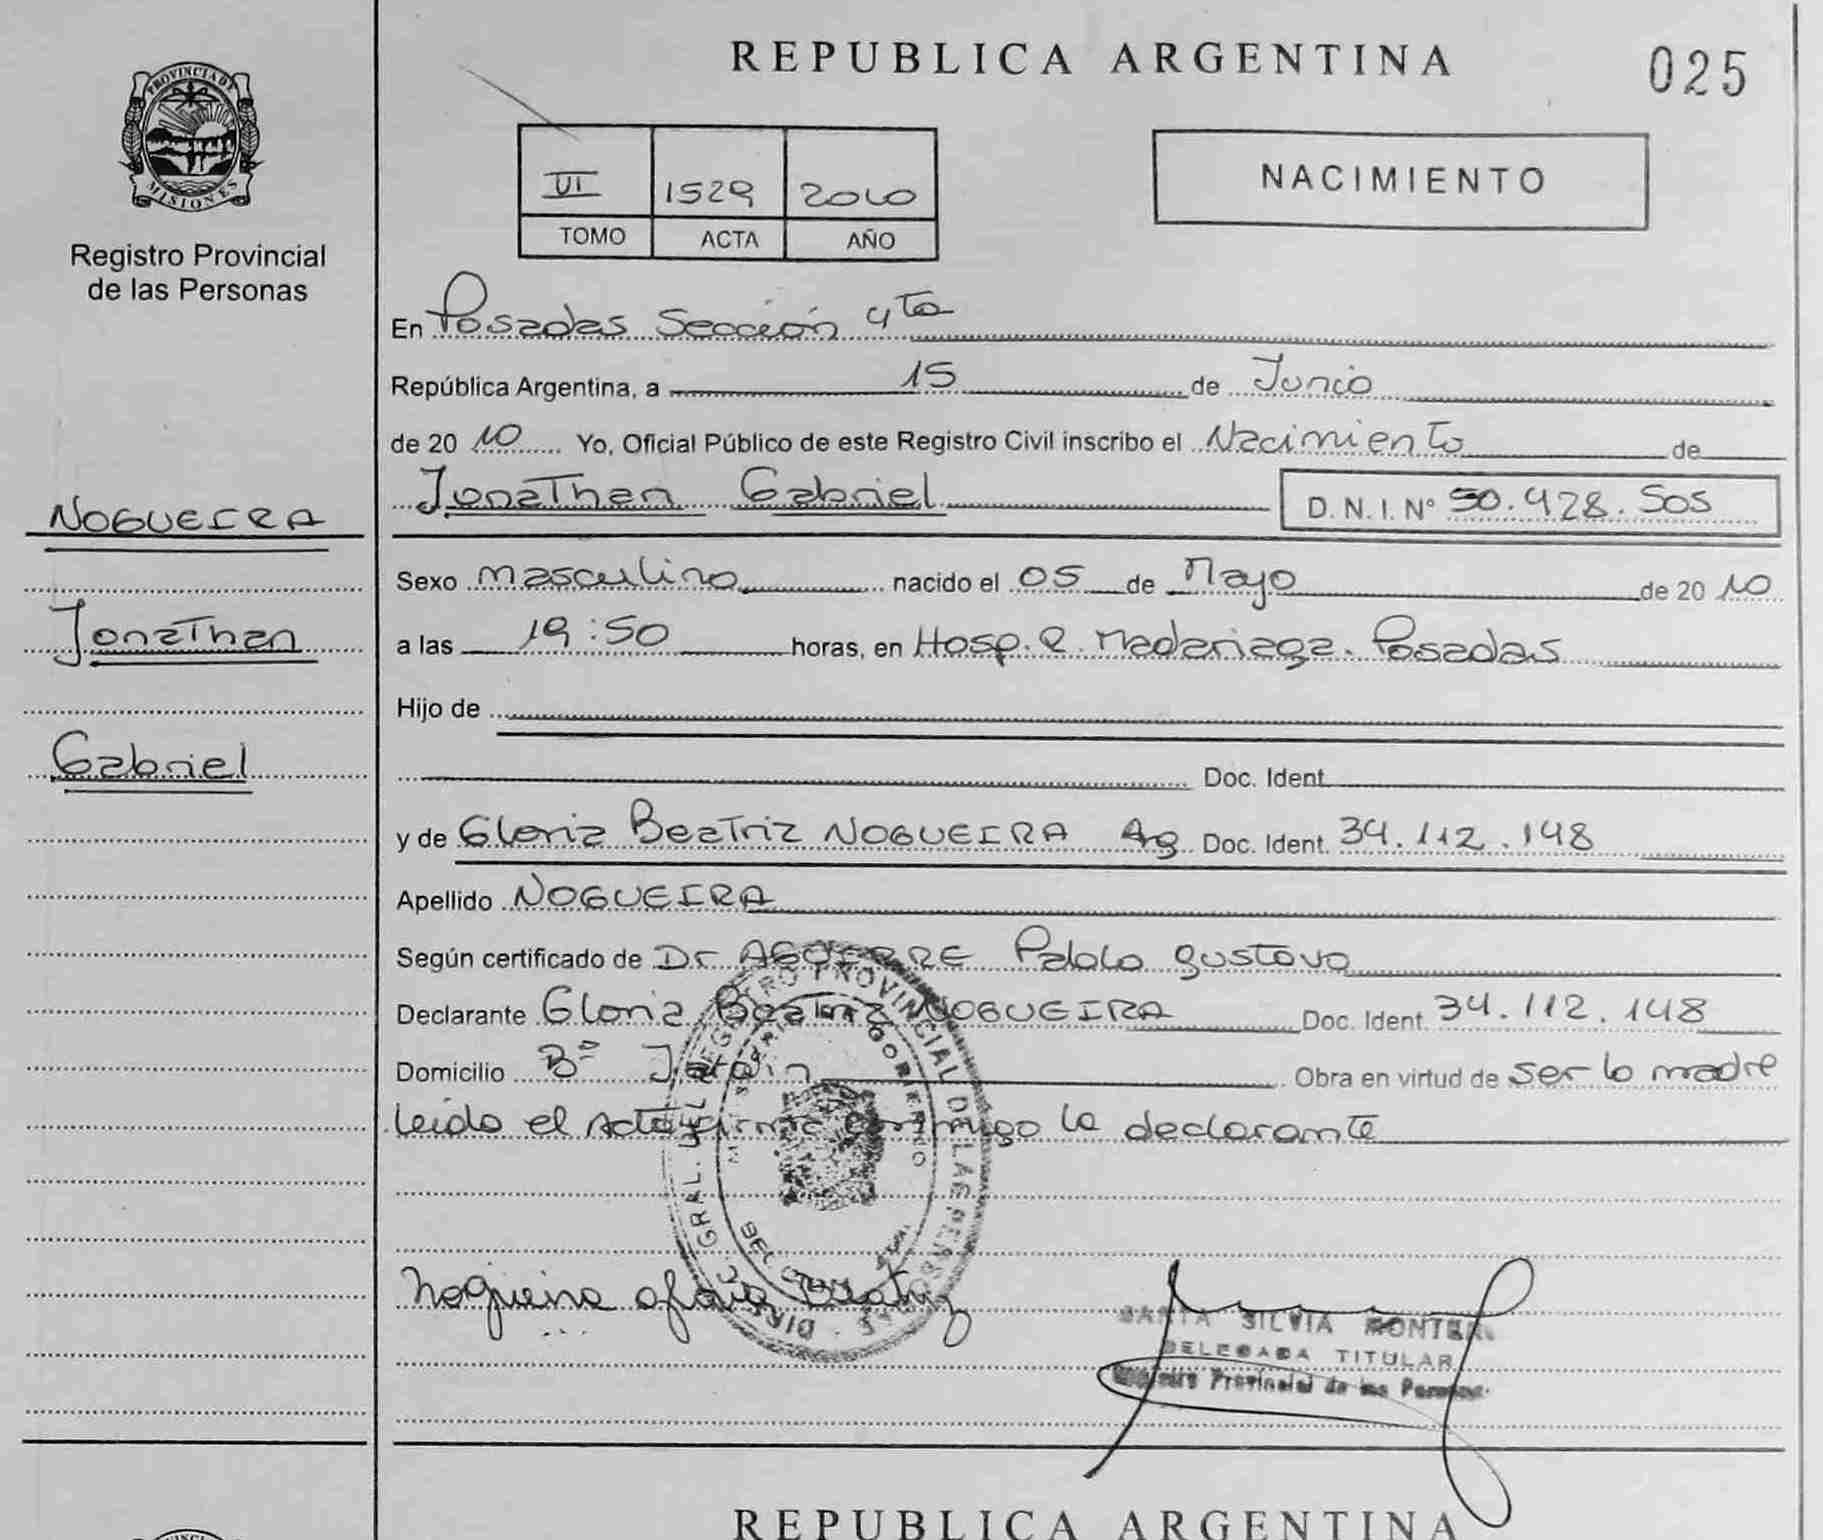 PROVINCIA DE
MISIONES
Registro Provincial
de las Personas
NOGUEIRA
Jonathan
Gabriel
REPUBLICA ARGENTINA
025
VI 1529 2010
TOMO ACTA AÑO
NACIMIENTO
En Posadas Sección 4ta
República Argentina, a 15 de Junio
de 2010 Yo, Oficial Público de este Registro Civil inscribo el Nacimiento de
Jonathan Gabriel D.N.I. Nº 50.428.505
Sexo masculino nacido el 05 de Mayo de 2010
a las 19:50 horas, en Hosp. R. Madariaga. Posadas
Hijo de
Doc. Ident.
y de Gloria Beatriz NOGUEIRA Ag Doc. Ident. 34.112.148
Apellido NOGUEIRA
Según certificado de Dr AGUIRRE Pablo gustavo
Declarante Gloria Beatriz NOGUEIRA Doc. Ident. 34.112.148
Domicilio Bº Jardin Obra en virtud de ser la madre
leida el acta firma conmigo la declarante
DIR. GRAL. DEL REGISTRO PROVINCIAL DE LAS PERSONAS
MINISTERIO DE GOBIERNO
Nogueira gloria Beatriz
SILVIA
DELEGADA TITULAR
Registro Provincial de las Personas
REPUBLICA ARGENTINA